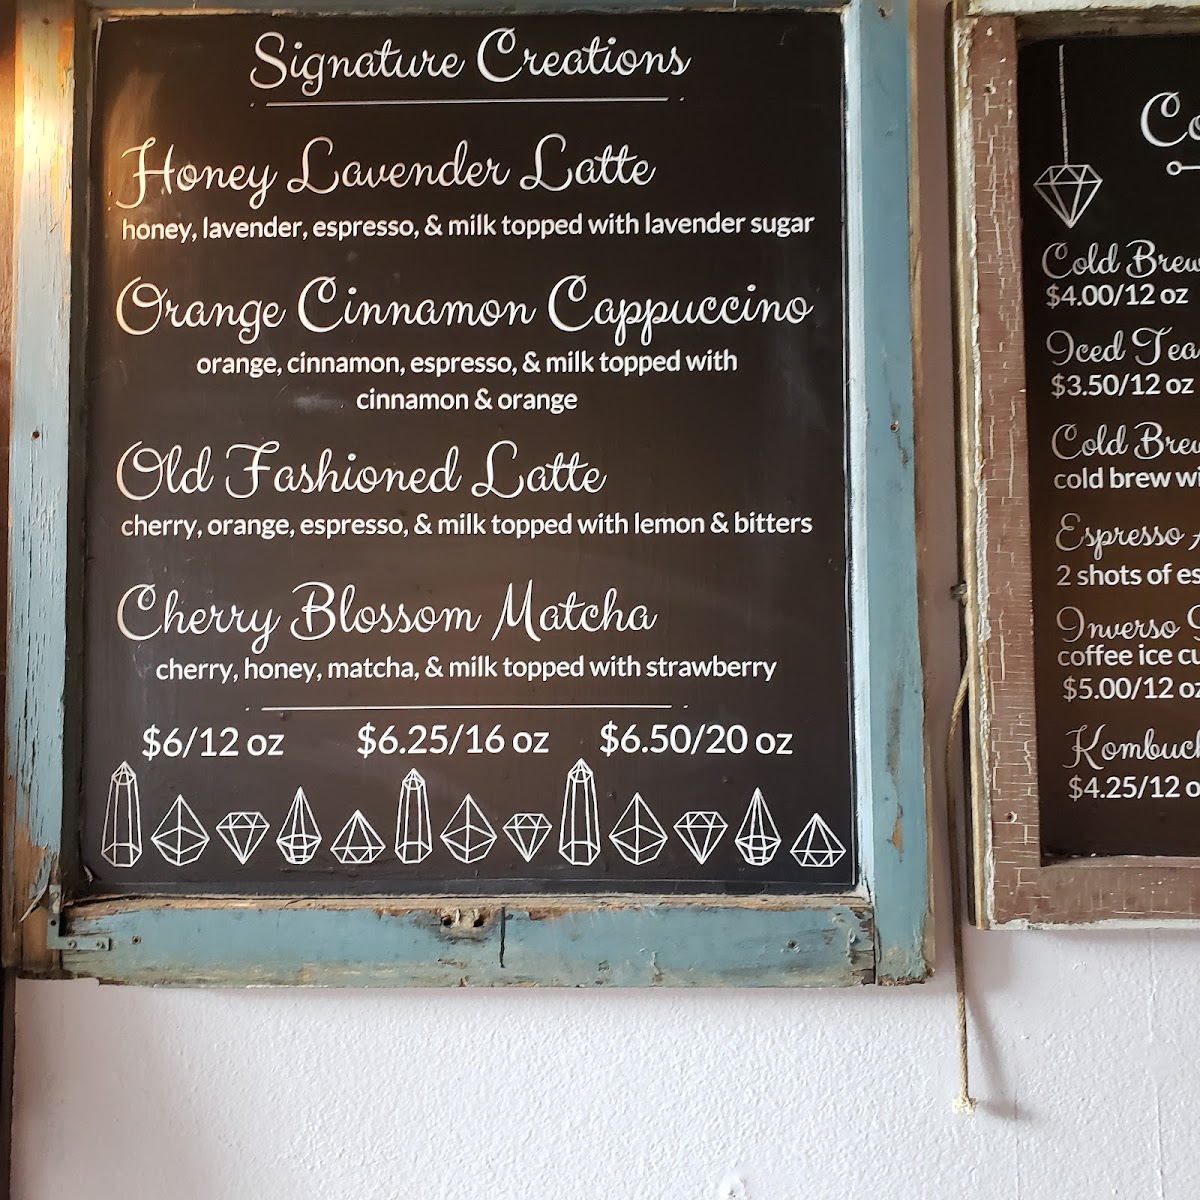 Signature Creations
Honey Lavender Latte
honey, lavender, espresso, & milk topped with lavender sugar
Orange Cinnamon Cappuccino
orange, cinnamon, espresso, & milk topped with
cinnamon & orange
Old Fashioned Latte
cherry, orange, espresso, & milk topped with lemon & bitters
Cherry Blossom Matcha
cherry, honey, matcha, & milk topped with strawberry
$6/12 oz $6.25/16 oz $6.50/20 oz
Cold Brew
$4.00/12 oz
Iced Tea
$3.50/12 oz
Cold Brew
cold brew
Espresso
2 shots of
Inverso
coffee ice
$5.00/12 oz
$4.25/12